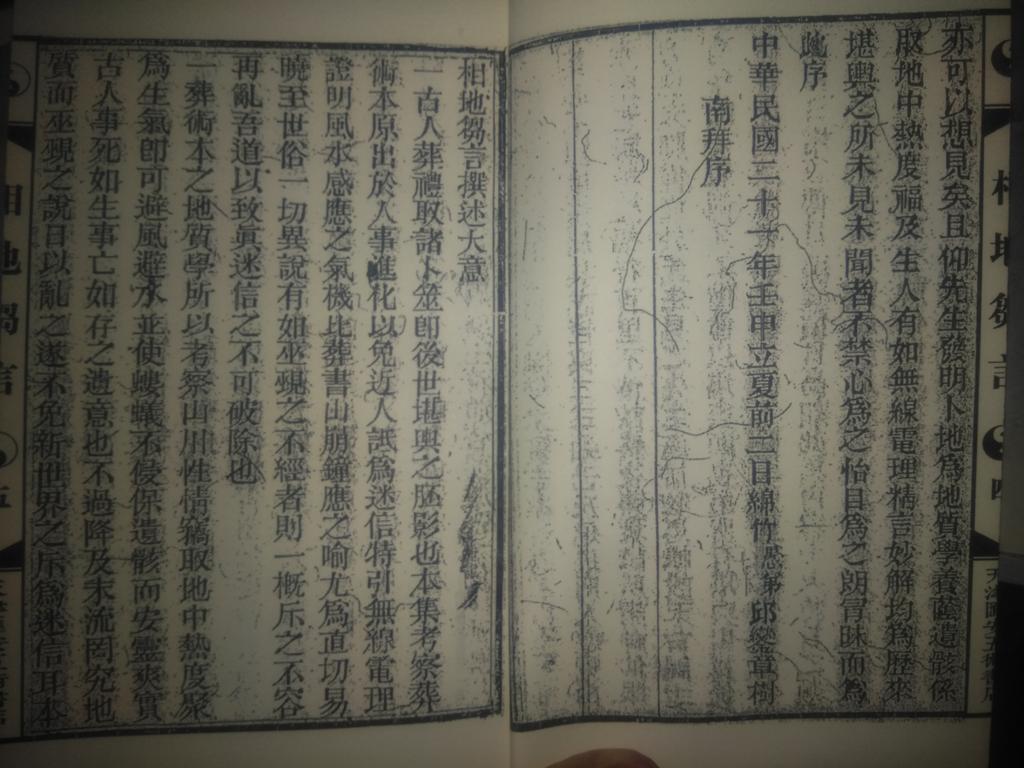 亦可以想見矣且仰先生發明卜地為地質學養蔭遺骸係
取地中熱度福及生人有如無線電理精言妙解均為歷來
堪輿之所未見未聞者不禁心為之怡目為之朗冐昧而為
此序
中華民國二十一年壬申立夏前二日綿竹愚弟邱燮章樹
南拜序
相地芻言
四
相地芻言撰述大意
一古人葬禮取諸卜筮卽後世堪輿之胚影也本集考察葬
術本原出於人事進化以免近人誤為迷信特引無線電理
證明風水感應之氣機比葬書山崩鐘應之喻尤為直切易
曉至世俗一切異說有如巫覡之不經者則一概斥之不容
再亂吾道以致眞迷信之不可破除也
一葬術本之地質學所以考察山川性情竊取地中熱度聚
為生氣卽可避風避水並使螻蟻不侵保遺骸而安靈爽實
古人事死如生事亡如存之遺意也不過降及末流罔究地
質而巫覡之說日以亂之遂不免新世界之斥為迷信耳本
相地芻言
五